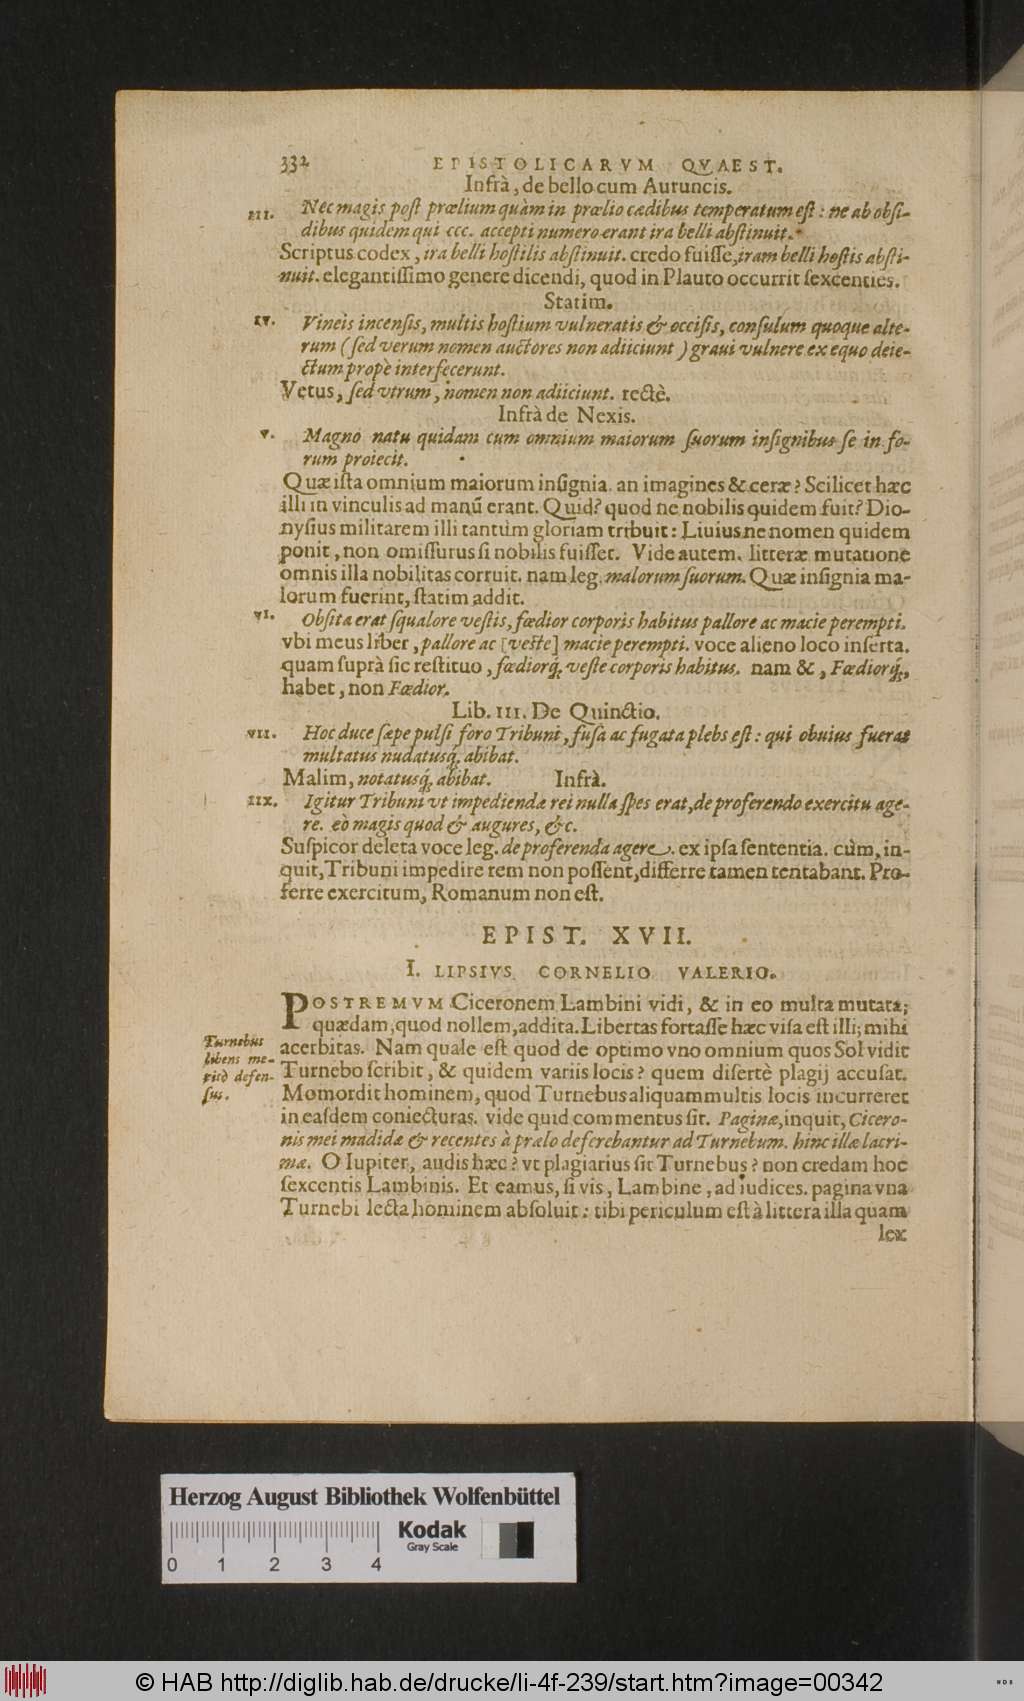 332 EPISTOLICARVM QVAEST.
Infrà, de bello cum Auruncis.
III. Nec magis post prælium quàm in prælio cædibus temperatum est: ne ab obsi-
dibus quidem qui ccc. accepti numero erant ira belli abstinuit.
Scriptus codex, ira belli hostilis abstinuit. credo fuisse, iram belli hostis absti-
nuit. elegantissimo genere dicendi, quod in Plauto occurrit sexcenties.
Statim.
IV. Vineis incensis, multis hostium vulneratis & occisis, consulum quoque alte-
rum (sed verum nomen auctores non adiiciunt) graui vulnere ex equo deie-
ctum propè interfecerunt.
Vetus, sed vtrum, nomen non adiiciunt. rectè.
Infrà de Nexis.
V. Magno natu quidam cum omnium maiorum suorum insignibus se in fo-
rum proiecit.
Quæ ista omnium maiorum insignia. an imagines & ceræ? Scilicet hæc
illi in vinculis ad manū erant. Quid? quod ne nobilis quidem fuit? Dio-
nysius militarem illi tantùm gloriam tribuit: Liuius ne nomen quidem
ponit, non omissurus si nobilis fuisset. Vide autem. litteræ mutatione
omnis illa nobilitas corruit. nam leg. malorum suorum. Quæ insignia ma-
lorum fuerint, statim addit.
VI. Obsita erat squalore vestis, fœdior corporis habitus pallore ac macie perempti.
vbi meus liber, pallore ac [veste] macie perempti. voce alieno loco inserta.
quam suprà sic restituo, fœdiorq́; veste corporis habitus. nam &, Fœdiorq́;,
habet, non Fœdior.
Lib. III. De Quinctio.
VII. Hoc duce sæpe pulsi foro Tribuni, fusa ac fugata plebs est: qui obuius fuerat
multatus nudatusq́; abibat.
Malim, notatusq́; abibat. Infrà.
IIX. Igitur Tribuni vt impediendæ rei nulla spes erat, de proferendo exercitu age-
re. eò magis quod & augures, &c.
Suspicor deleta voce leg. de proferenda agere. ex ipsa sententia. cùm, in-
quit, Tribuni impedire rem non possent, differre tamen tentabant. Pro-
ferre exercitum, Romanum non est.
EPIST. XVII.
I. LIPSIVS CORNELIO VALERIO.
POSTREMVM Ciceronem Lambini vidi, & in eo multa mutata;
quædam, quod nollem, addita. Libertas fortasse hæc visa est illi; mihi
acerbitas. Nam quale est quod de optimo vno omnium quos Sol vidit
Turnebo scribit, & quidem variis locis? quem disertè plagij accusat.
Momordit hominem, quod Turnebus aliquam multis locis incurreret
in easdem coniecturas. vide quid commentus sit. Paginæ, inquit, Cicero-
nis mei madidæ & recentes à prælo deferebantur ad Turnebum. hinc illæ lacri-
mæ. O Iupiter, audis hæc? vt plagiarius sit Turnebus? non credam hoc
sexcentis Lambinis. Et eamus, si vis, Lambine, ad iudices. pagina vna
Turnebi lecta hominem absoluit: tibi periculum est à littera illa quam
lex
Turnebus
libens me-
ritò defen-
sus.
Herzog August Bibliothek Wolfenbüttel
0 1 2 3 4
Kodak
Gray Scale
© HAB http://diglib.hab.de/drucke/li-4f-239/start.htm?image=00342